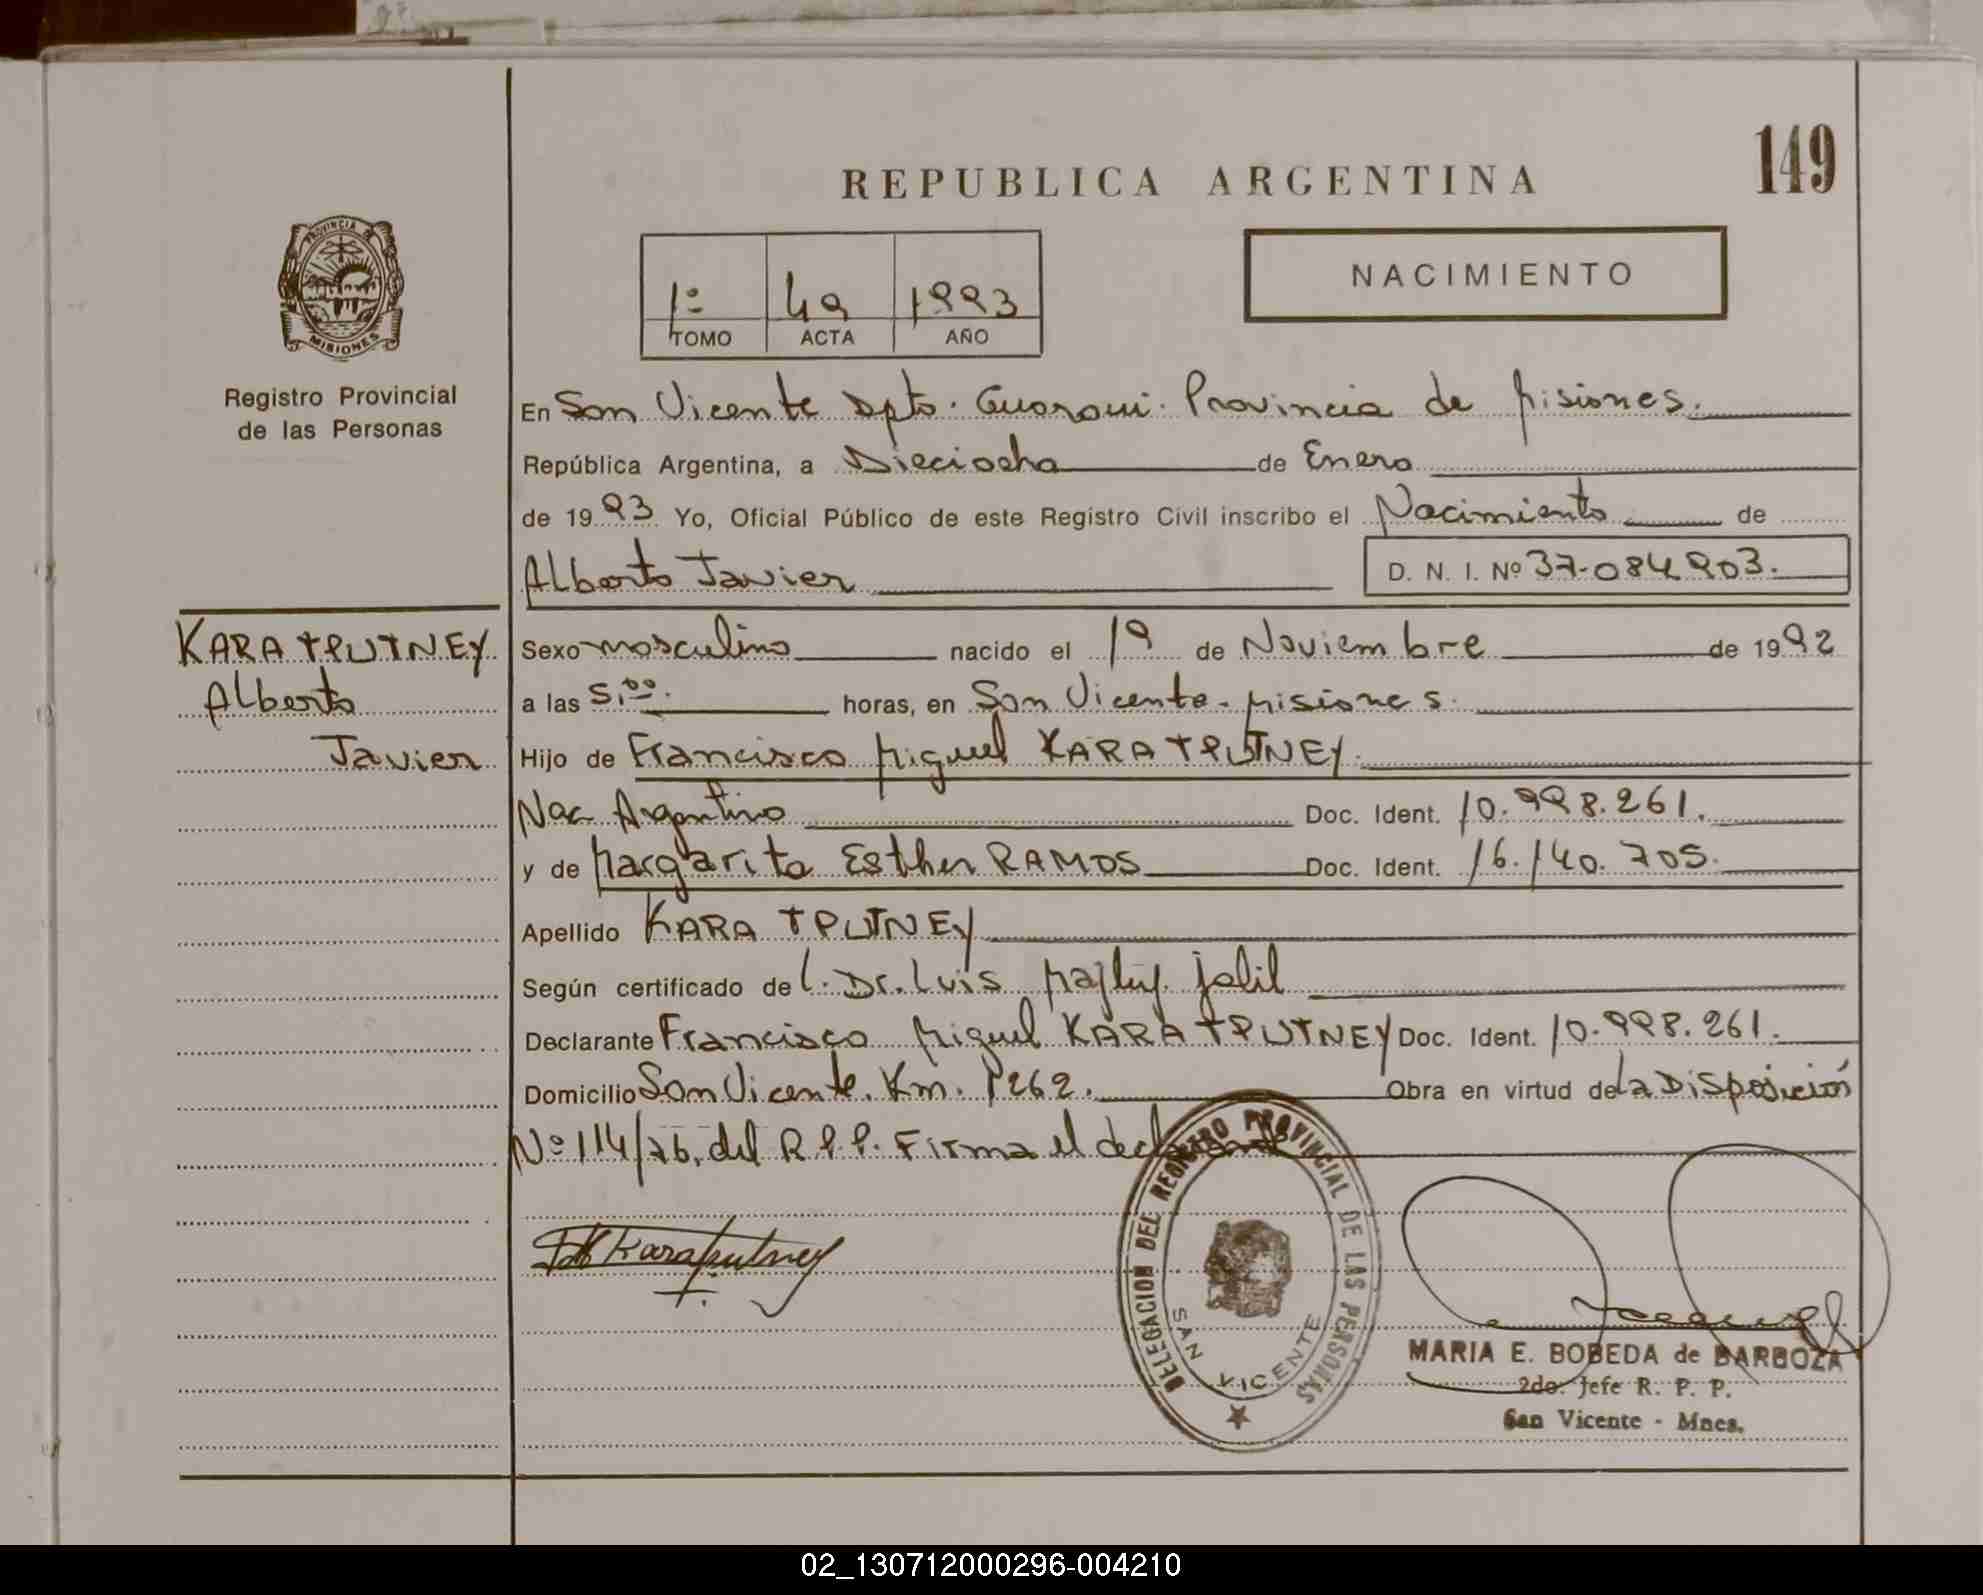 149
REPUBLICA ARGENTINA
PROVINCIA DE
MISIONES
Registro Provincial
de las Personas
1º 49 1993
TOMO ACTA AÑO
NACIMIENTO
En San Vicente Dpto. Guaraní. Provincia de Misiones.
República Argentina, a Dieciocho de Enero
de 1993 Yo, Oficial Público de este Registro Civil inscribo el Nacimiento de
Alberto Javier D. N. I. Nº 37.084.903.
KARA TPUTNEY
Alberto
Javier
Sexo masculino nacido el 19 de Noviembre de 1992
a las 5:00. horas, en San Vicente. Misiones.
Hijo de Francisco Miguel KARA TPUTNEY.
Nac Argentino Doc. Ident. 10.998.261.
y de Margarita Esther RAMOS Doc. Ident. 16.140.705.
Apellido KARA TPUTNEY
Según certificado del. Dr. Luis Jalil
Declarante Francisco Miguel KARA TPUTNEY Doc. Ident. 10.998.261.
Domicilio San Vicente. Km. 1262. Obra en virtud de la Disposición
Nº 114/76, del R.P.P. Firma el declarante
Karatputney
DELEGACION DEL REGISTRO PROVINCIAL DE LAS PERSONAS
SAN VICENTE
MARIA E. BOBEDA de BARBOZA
2do. Jefe R. P. P.
San Vicente - Mnes.
02_130712000296-004210